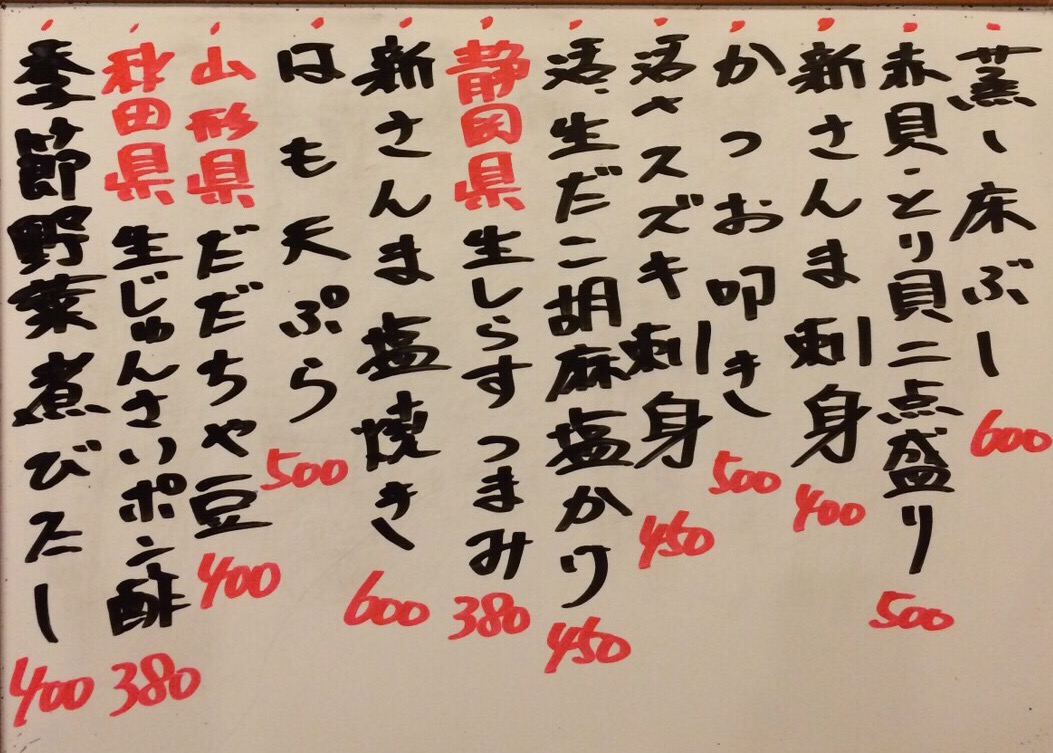 蒸し床ぶし 600
赤貝・とり貝二点盛り 500
新さんま刺身 400
かつお叩き 500
活〆スズキ刺身 450
活、生だこ胡麻塩かけ 450
静岡県 生しらす つまみ 380
新さんま 塩焼き 600
はも天ぷら 500
山形県 だだちゃ豆 400
秋田県 生じゅんさいポン酢 380
季節野菜煮びたし 400